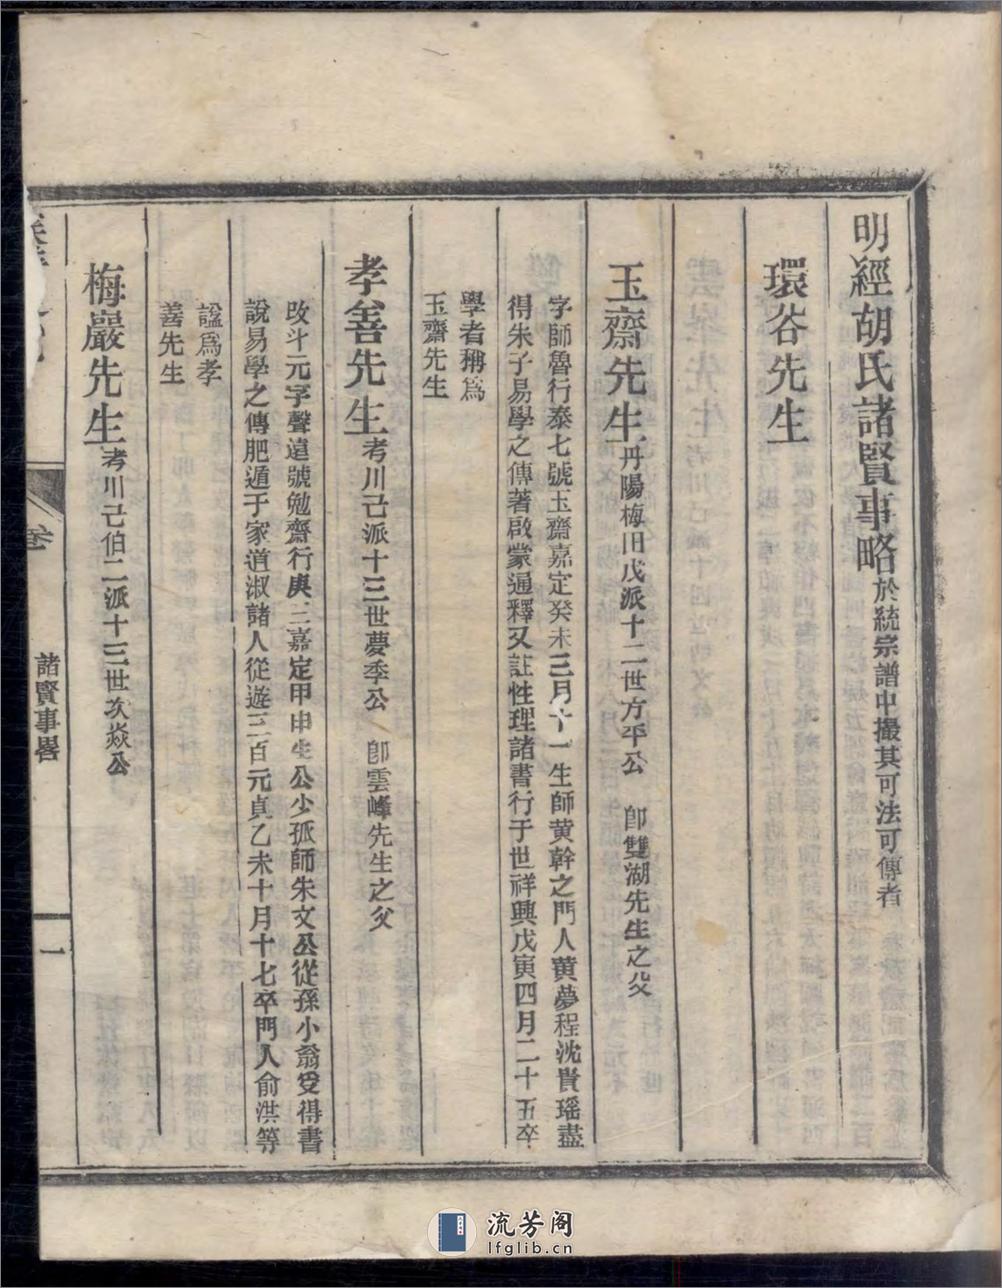 明經胡氏諸賢事略於統宗譜中撮其可法可傳者
環谷先生
玉齋先生丹陽梅田戊派十二世方平公 卽雙湖先生之父
字師魯行泰七號玉齋嘉定癸未三月十一生師黄幹之門人黄夢程沈貴瑶盡
得朱子易學之傳著啟蒙通釋又註性理諸書行于世祥興戊寅四月二十五卒
學者稱爲
玉齋先生
孝善先生考川己派十三世夢季公 卽雲峰先生之父
改斗元字聲遠號勉齋行庚三嘉定甲申生公少孤師朱文公從孫小翁受得書
說易學之傳肥遁于家道淑諸人從遊三百元貞乙未十月十七卒門人俞洪等
諡爲孝
善先生
梅巖先生考川己伯二派十三世次焱公
卷
諸賢事畧
一
流芳阁
lfglib.cn